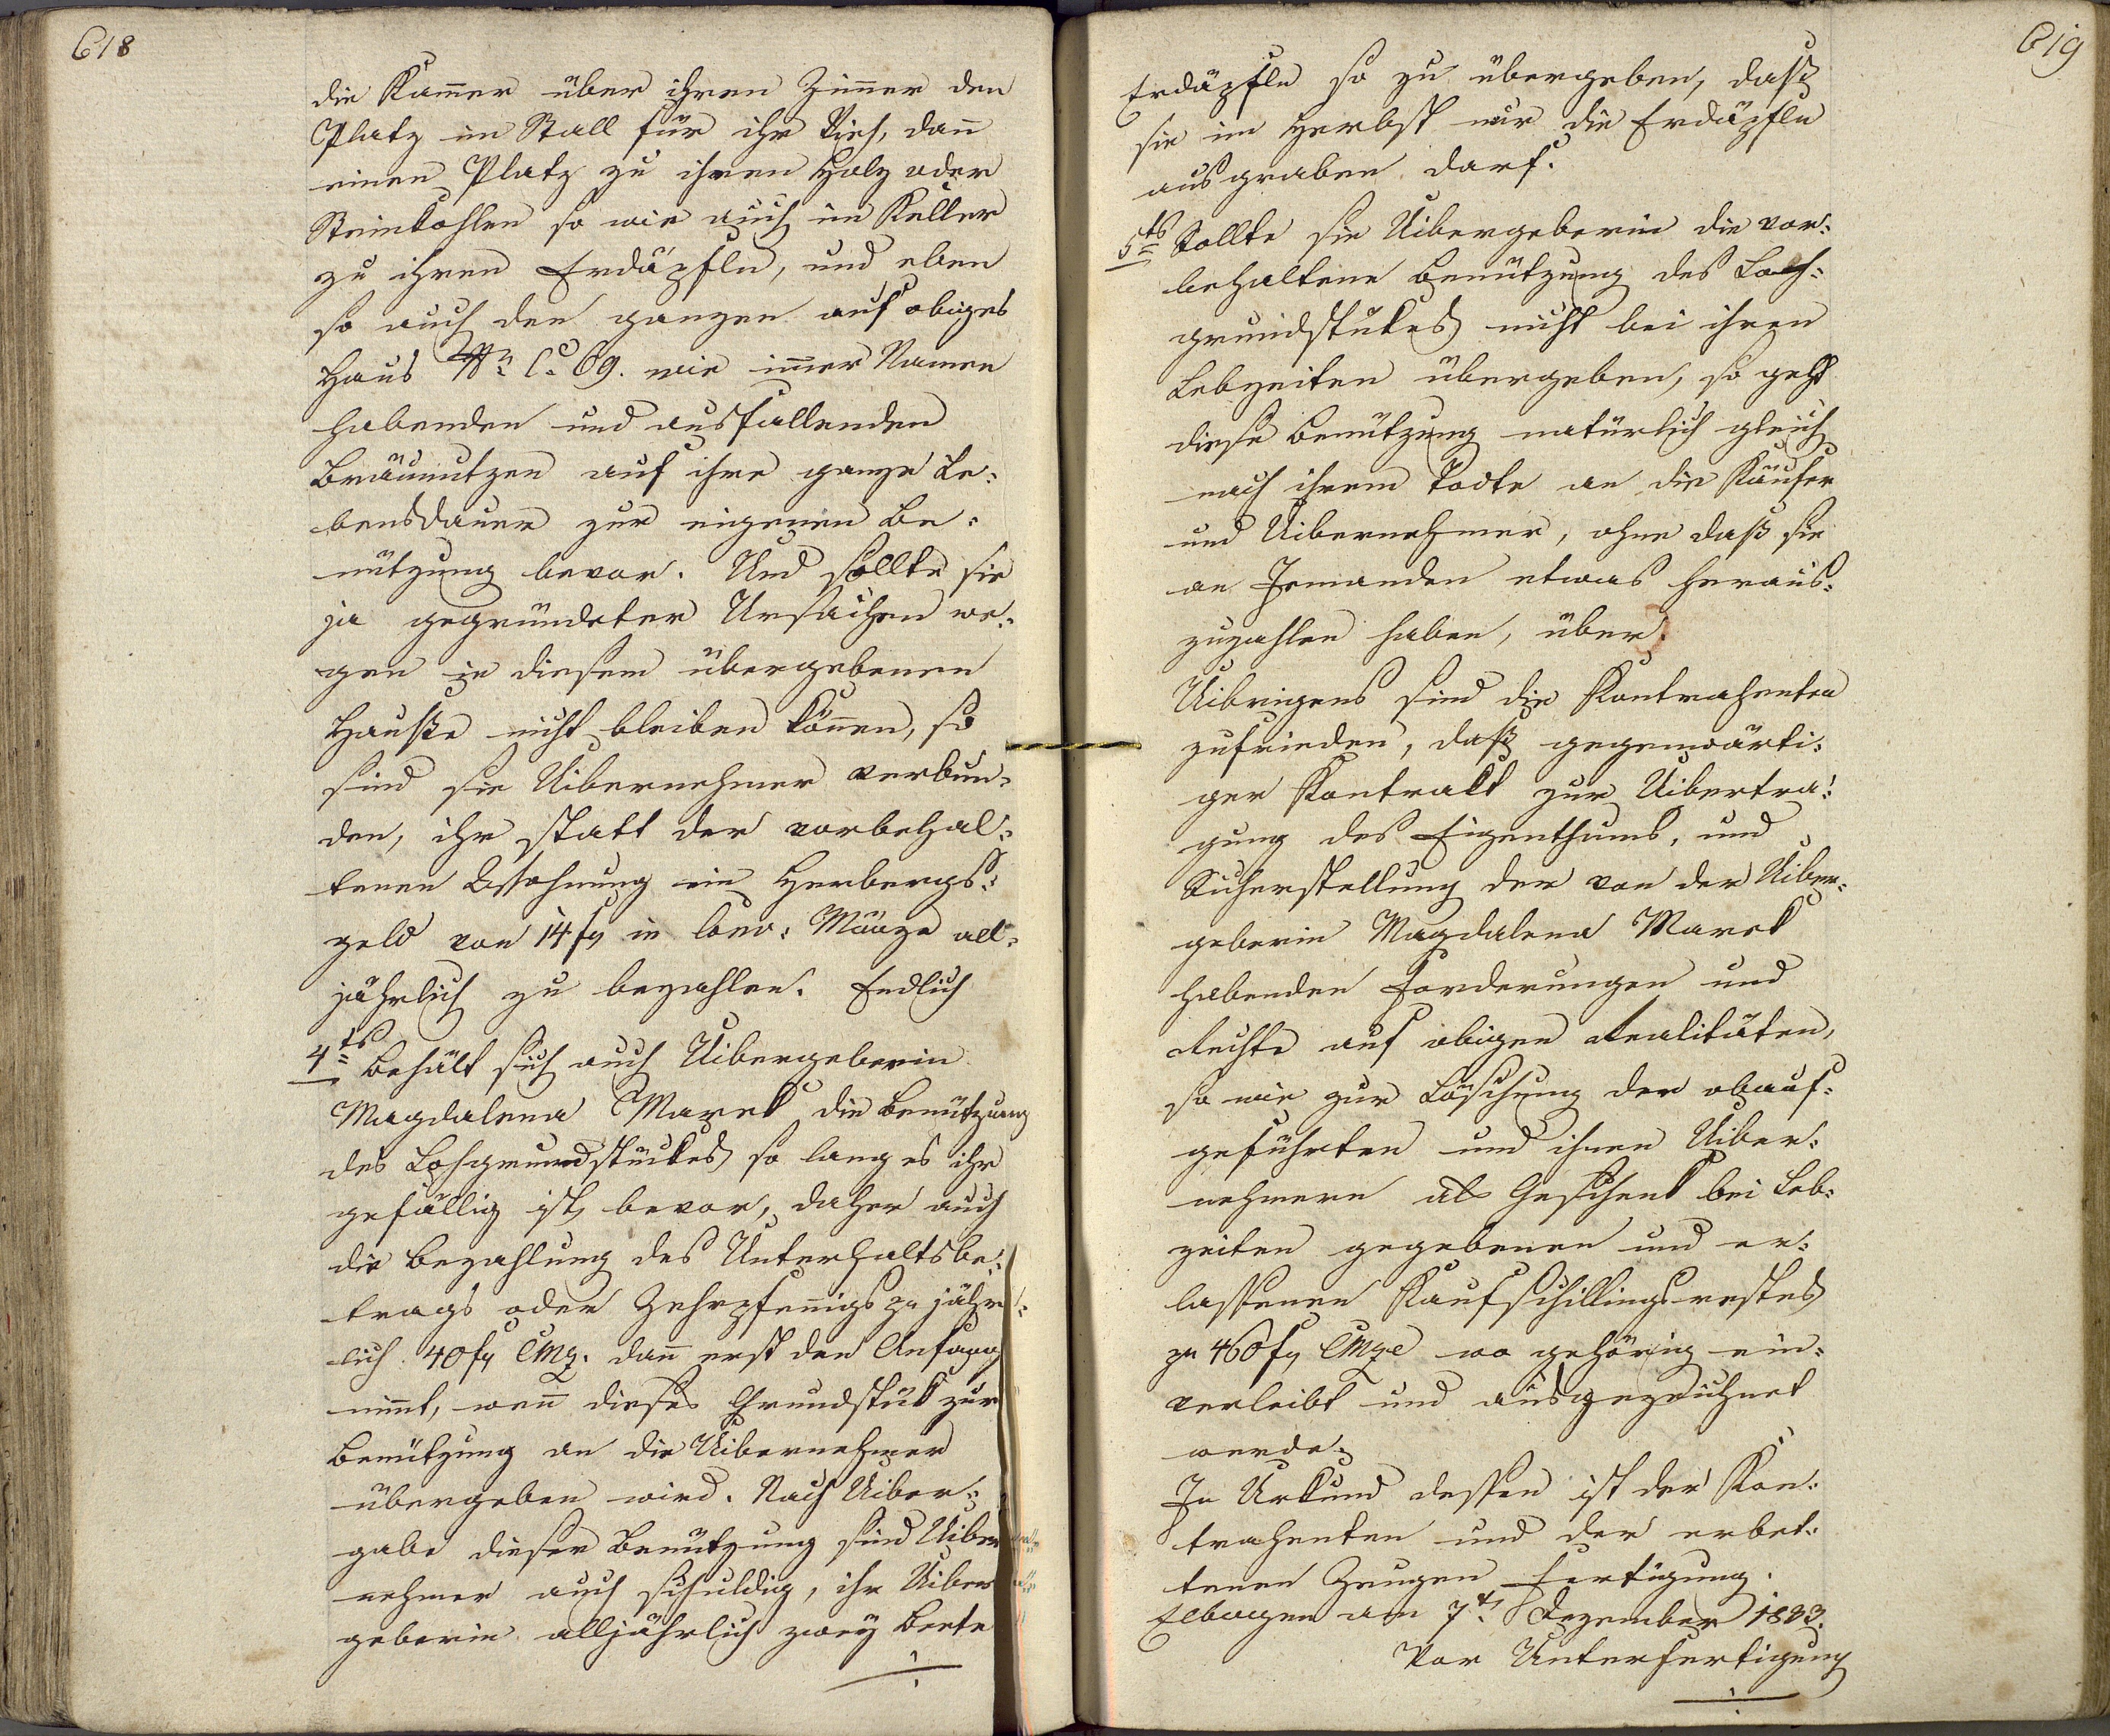 618
die Kam̅er über ihren Zim̅er den
Platz im Stall für ihr Vieh, dan̅
einen Platz zu ihren Holz oder
Steinkohlen so wie auch im Keller
zu ihren Erdäpfeln, und eben
so auch den ganzen auf obiges
Haus Nr. C. 69. wie im̅er Namen
habenden und ausfallenden
Bräunutzen auf ihre ganze Le:
bensdauer zur eigenen Be:
nützung bevor. Und sollte sie
ja gegründeter Ursachen we:
gen in diesem übergebenen
Hauße nicht bleiben kön̅en, so
sind die Uibernehmer verbun:
den, ihr statt der vorbehal:
tenen Wohnung ein Herbergs:
geld von 14 fl in Conv: Münze all:
jährlich zu bezahlen. Endlich
4ts Behält sich auch Uibergeberin
Magdalena Marek die Benützung
des Lohgrundstückes so lang es ihr
gefällig ist, bevor, daher auch
die Bezahlung des Unterhaltsbe:
trags oder Zehrpfen̅igs pr jähr:
lich 40 fl CMz. dan̅ erst den Anfang
nim̅t, wen̅ dieses Grundstük zur
Benützung an die Uibernehmer
übergeben wird. Nach Uiber:
gabe dieser Benützung sind Uiber
nehmer auch schuldig, ihr Uiber
geberin alljährlich zwey Beete
619
Erdäpfeln so zu übergeben, daß
sie im Herbst nur die Erdäpfeln
ausgraben darf.
5ts Sollte die Uibergeberin die vor:
behaltene Benützung des Loh:
grundstükes nicht bei ihren
Lebzeiten übergeben, so geht
diese Benützung natürlich gleich
nach ihrem Tode an die Käufer
und Uibernehmer, ohne daß sie
an Jemanden etwas heraus:
zuzahlen haben, über.
Uibrigens sind die Kontrahenten
zufrieden, daß gegenwärti:
ger Kontrakt zur Uibertra:
gung des Eigenthums, und
Sicherstellung der von der Uiber:
geberin Magdalena Marek
habenden Forderungen und
Rechte auf obigen Realitäten,
so wie zur Löschung der obauf:
geführten und ihnen Uiber:
nehmern als Geschenk bei Leb:
zeiten gegebenen und er:
lassenen Kaufschillingsrestes
pr 460 fl CMze wo gehörig ein:
verleibt und ausgezeichnet
werde.
In Urkund dessen ist der Kon:
trahenten und der erbet:
tenen Zeugen Fertigung.
Elbogen am 7t. Dezember 1833.
Vor Unterfertigung